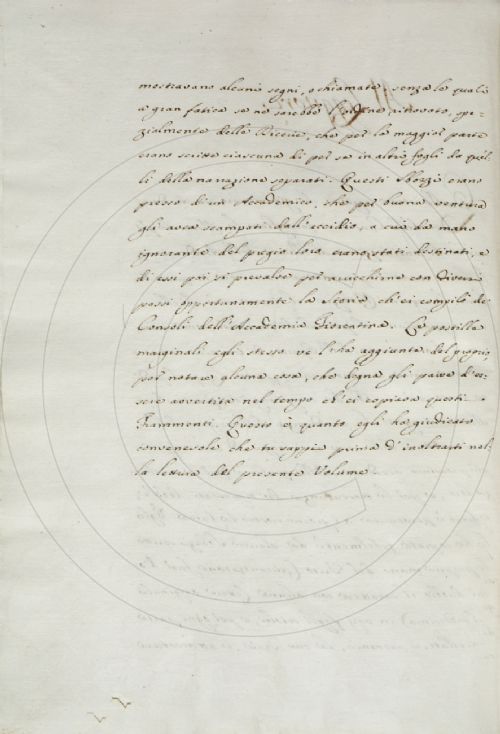 mostravano alcuni segni, o chiamate, senza le quali
a gran fatica se ne sarebbe l'ordine ritrovato, spe-
zialmente delle Ricevie, che per la maggior parte
erano scritte ciascuna di per se in altri fogli da quel-
li della narrazione separati. Questi Sbozzi erano
presso di un Accademico, che per buona ventura
gli avea scampati dall'eccidio, a cui da mano
ignorante del pregio loro erano stati destinati, e
di essi poi si prevalse per arricchirne con diversi
passi opportunamente la Storia ch'ei compilò de'
Consoli dell'Accademia Fiorentina. Le postille
marginali egli stesso ve l'ha aggiunte del proprio
per notare alcuna cosa, che degna gli parve d'es-
sere avvertita nel tempo ch'ei copiava questi
Frammenti. Questo è quanto egli ha giudicato
convenevole che tu sappia prima d'inoltrarti nel-
la lettura del presente Volume.